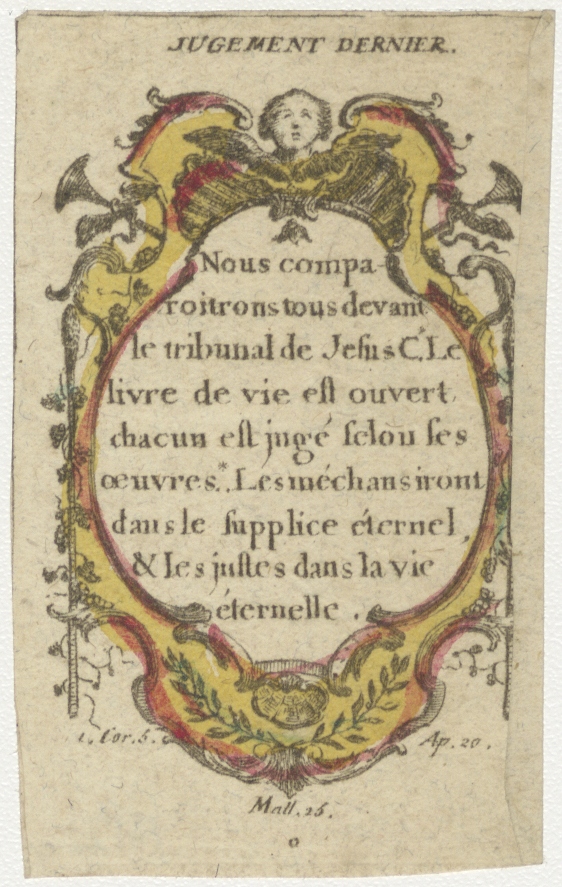 JUGEMENT DERNIER.
Nous compa-
roitrons tous devant
le tribunal de Jesus C. Le
livre de vie est ouvert,
chacun est jugé selon ses
œuvres.* Les méchans iront
dans le supplice éternel,
& les justes dans la vie
éternelle.
1. Cor. 5. Ap. 20.
Matt. 25.